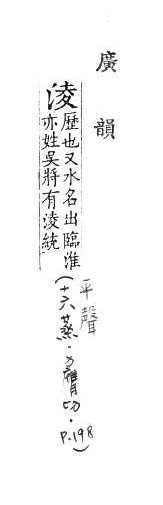 廣韻
淩歷也又水名出臨淮
亦姓吳將有淩統
平聲
(十六蒸.力膺切.
P.198)